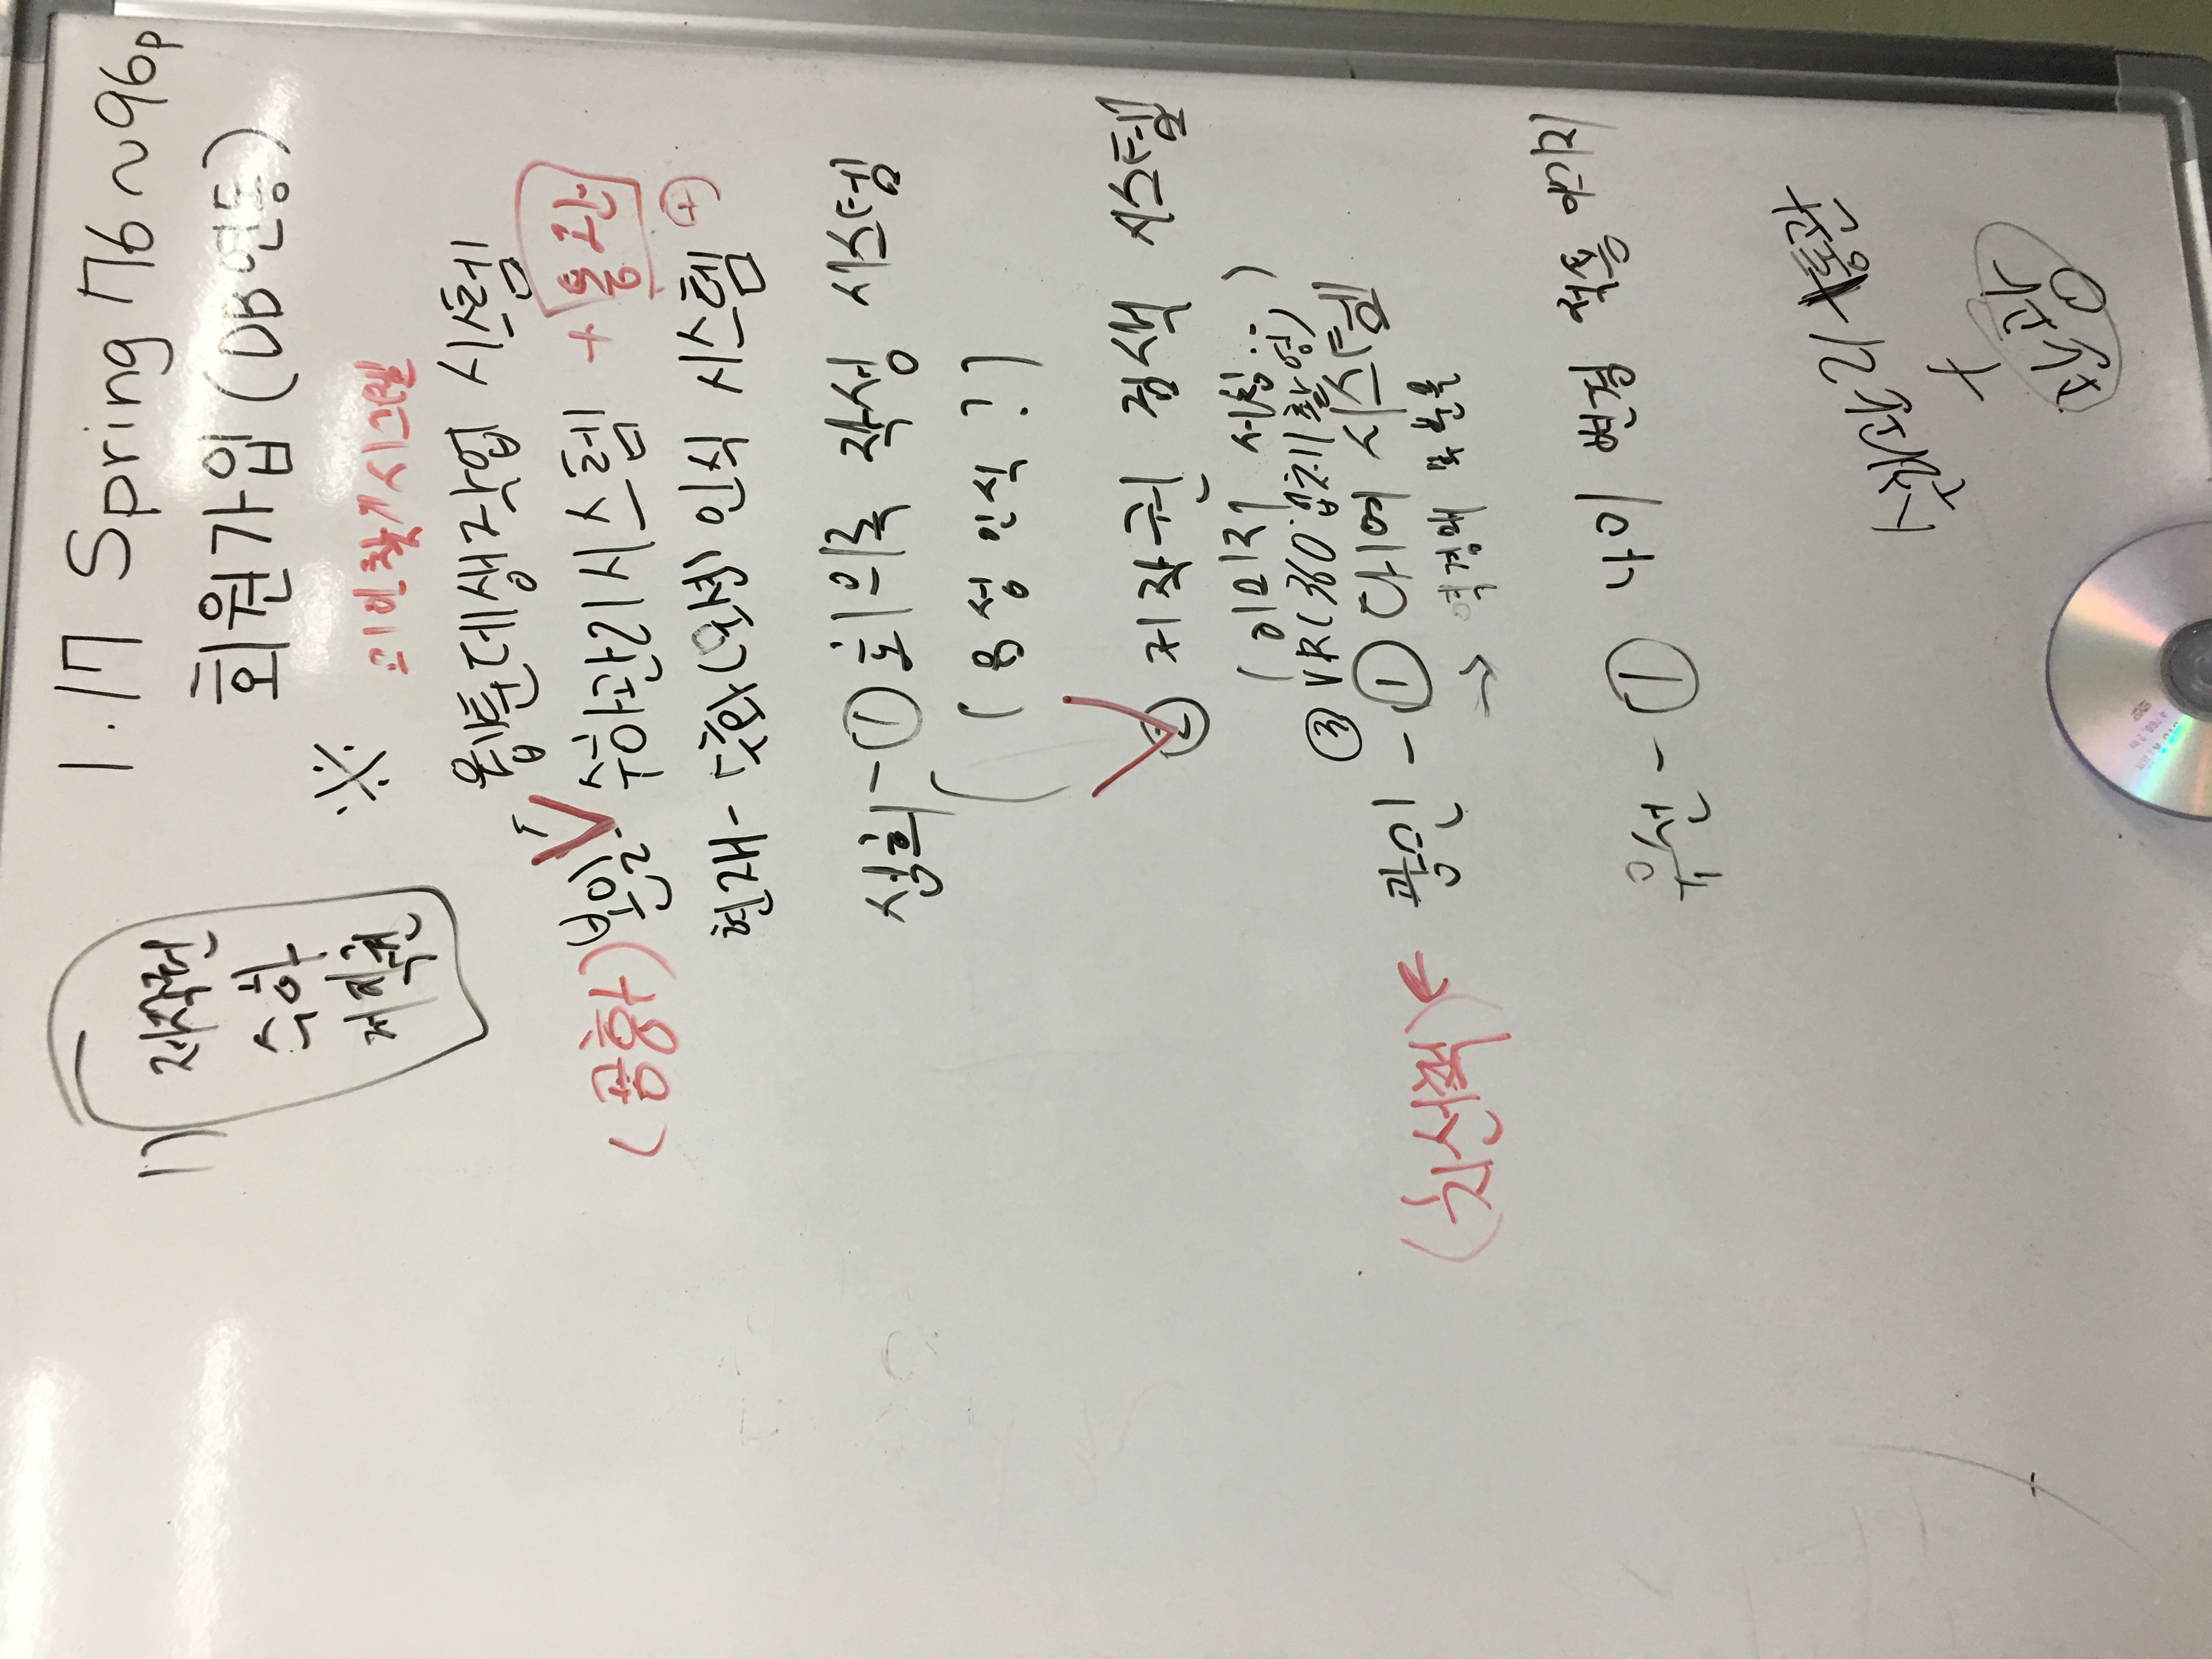 1.17 Spring 76~96p
회원가입 (DB연동)
1) 저작권
수하
저작권
※
미인찾기시스템
웹툰데생작업 시스템
(공항) 본일 - 수하관리시스템 + 통관
현재 - 수화(모션) 인식 시스템 +
성희 - ① 회의록 작성 시스템
(음성 인식?)
② 저작권 검색 시스템
(이미지 서칭..)
③ VR(360° 입체촬영)
(차선책) ← 광민 - ① 대여 시스템
→ 역경매 부분을
유선 - ① 나이 변경 적용 이미지
수하관리+통관
+
관광